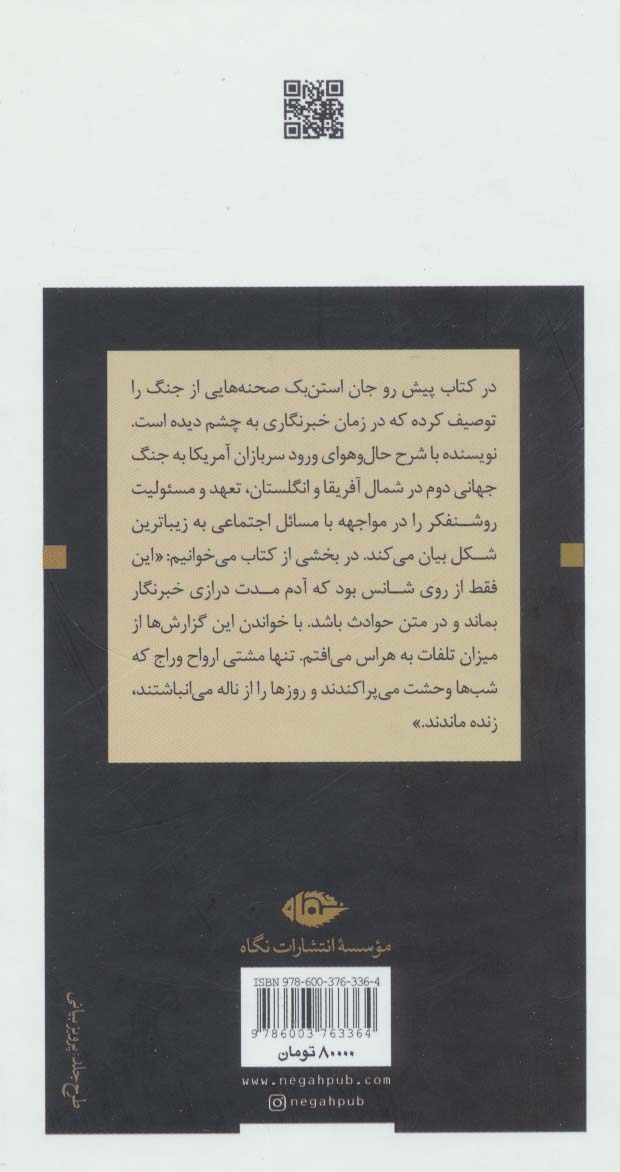 در کتاب پیش رو جان استن‌بک صحنه‌هایی از جنگ را
توصیف کرده که در زمان خبرنگاری به چشم دیده است.
نویسنده با شرح حال‌وهوای ورود سربازان آمریکا به جنگ
جهانی دوم در شمال آفریقا و انگلستان، تعهد و مسئولیت
روشنفکر را در مواجهه با مسائل اجتماعی به زیباترین
شکل بیان می‌کند. در بخشی از کتاب می‌خوانیم: «این
فقط از روی شانس بود که آدم مدت درازی خبرنگار
بماند و در متن حوادث باشد. با خواندن این گزارش‌ها از
میزان تلفات به هراس می‌افتم. تنها مشتی ارواح وراج که
شب‌ها وحشت می‌پراکندند و روزها را از ناله می‌انباشتند،
زنده ماندند.»
نگاه
مؤسسهٔ انتشارات نگاه
ISBN 978-600-376-336-4
9 786003 763364
۸۰۰۰۰ تومان
www.negahpub.com
negahpub
طرح جلد: پرویز بیانی